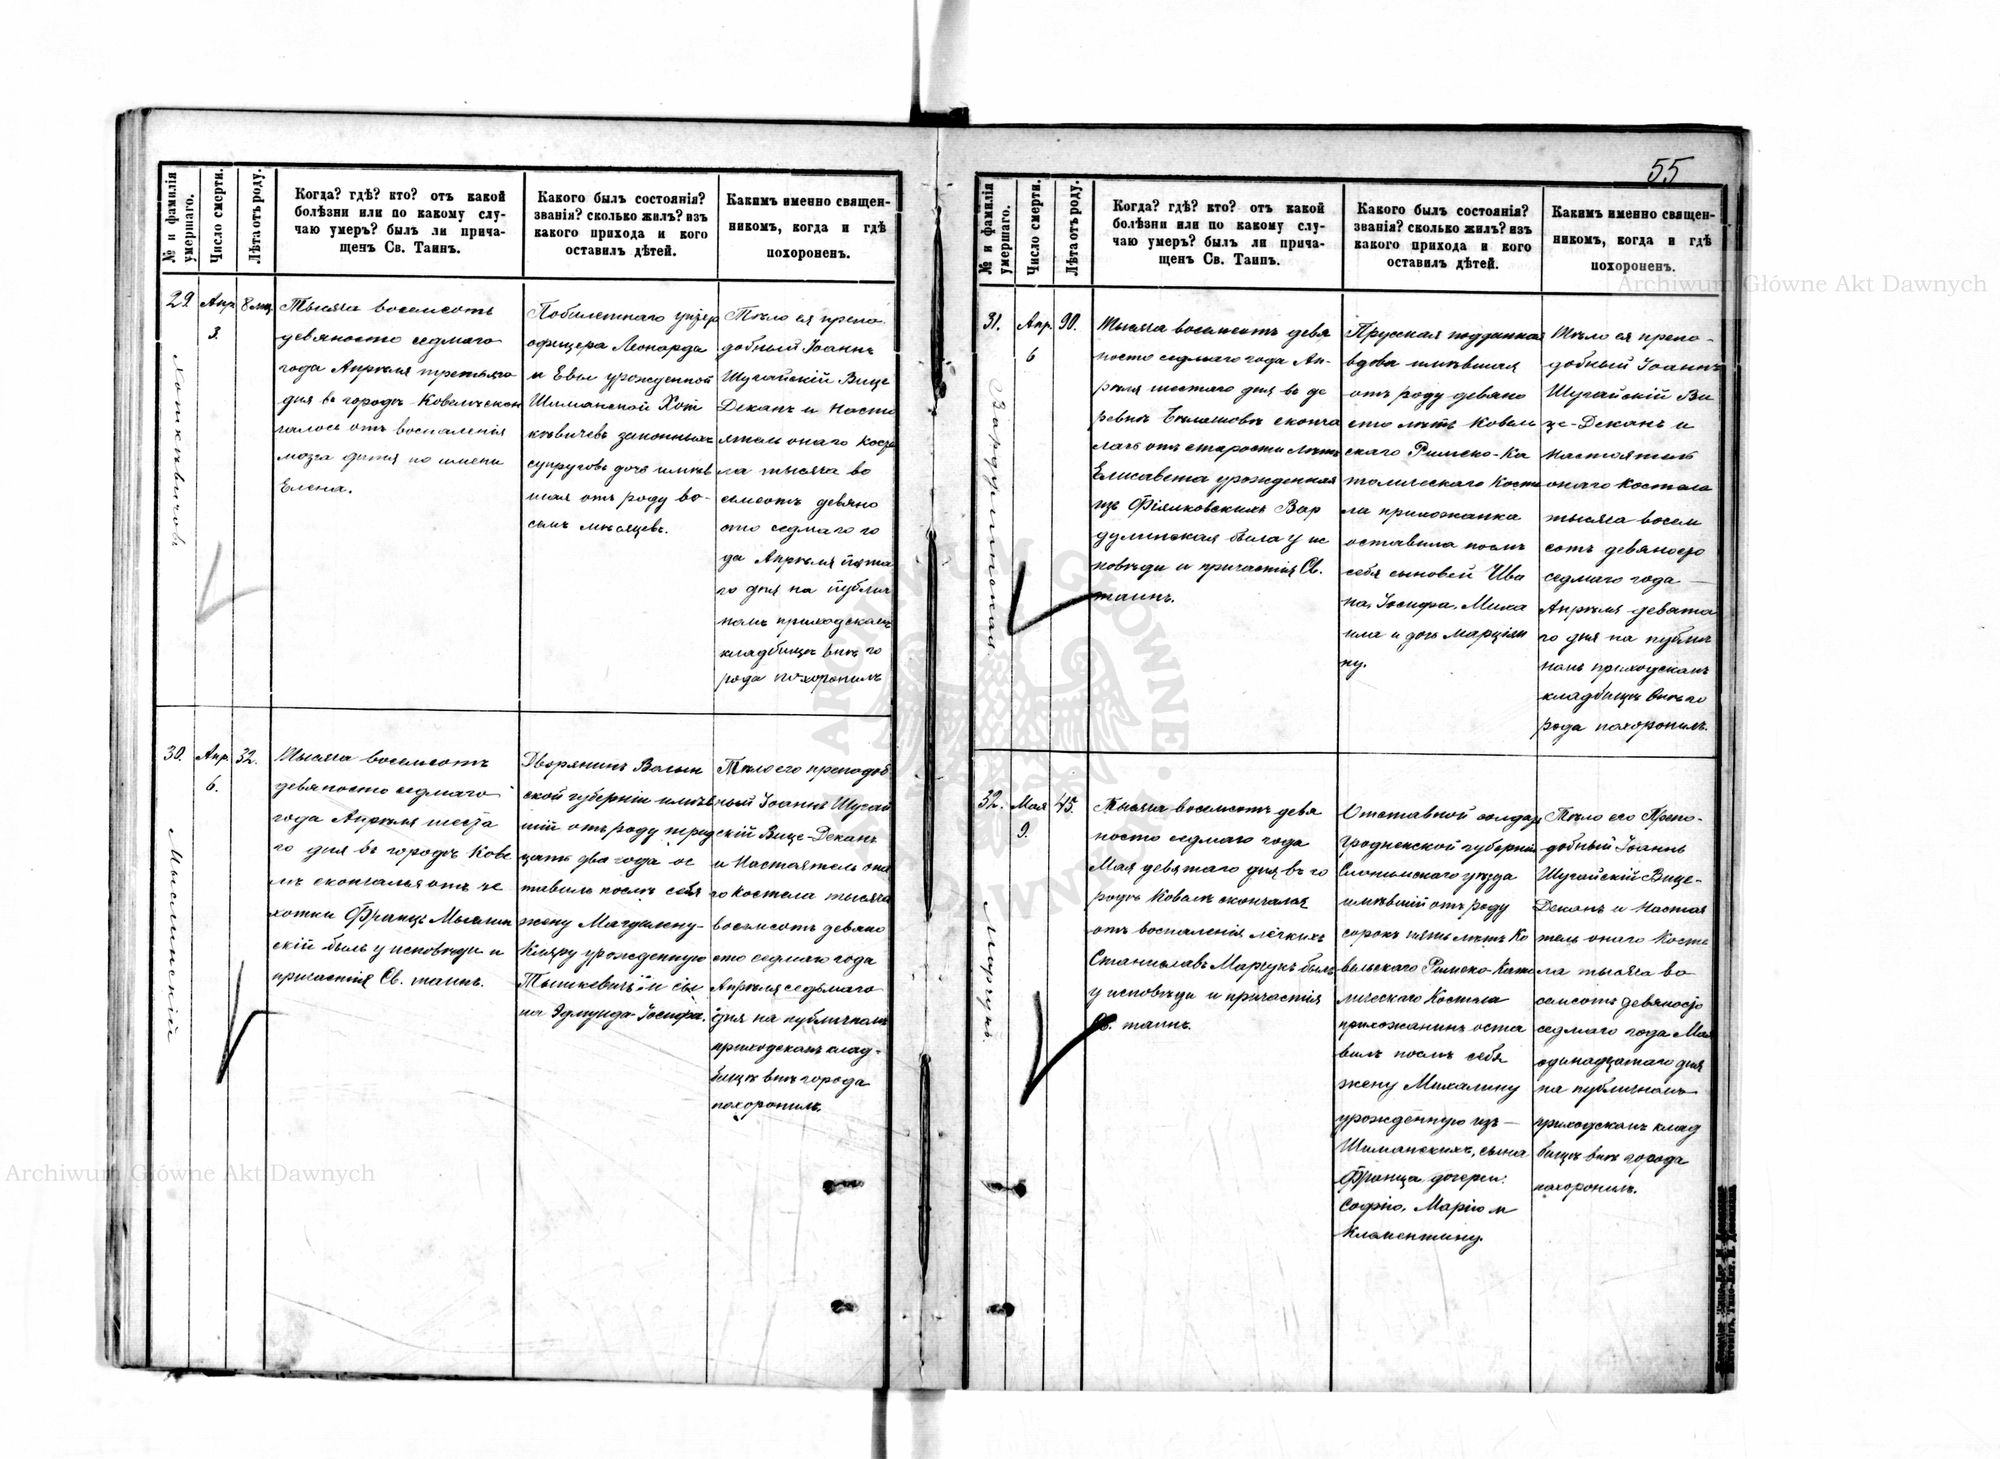 55
№ и фамилія умершаго.
Число смерти.
Лѣта отъ роду.
Когда? гдѣ? кто? отъ какой
болѣзни или по какому слу-
чаю умеръ? былъ ли прича-
щенъ Св. Таинъ.
Какого былъ состоянія?
званія? сколько жилъ? изъ
какого прихода и кого
оставилъ дѣтей.
Какимъ именно священ-
никомъ, когда и гдѣ
похороненъ.
29
Апр.
3.
8 мц.
Тысяча восемсотъ
девяносто седмаго
года Апрѣля третьяго
дня въ городѣ Ковелѣ скон
чалось отъ воспаленія
мозга дитя по имени
Елена.
офицера Леонарда
и Евы урожденной
Шиманской Хот
кѣвичевъ законныхъ
супруговъ дочь имѣв
шая отъ роду во-
семь мѣсяцевъ.
Тѣло ея препо
добный Іоаннъ
Шугайскій Вице
Деканъ и Насто
ятель онаго Косте
ла тысяча во
семсотъ девяно
сто седмаго го
да Апрѣля пята
го дня на публич
номъ приходскомъ
кладбищѣ внѣ го
рода похоронилъ
30.
Апр.
6.
32.
Мыслинскій
Тысяча восемсотъ
девяносто седмаго
года Апрѣля шеста
го дня въ городѣ Кове
лѣ скончался отъ че
хотки Францъ Мыслин
скій былъ у исповѣди и
причастія Св. таинъ.
Дворянинъ Волын
ской губерніи имѣв
шій отъ роду трид
цать два года ос
тавилъ послѣ себя
жену Магдалену-
Клару урожденную
Тышкевичъ и сы
на Эдмунда-Іосифа.
Тѣло его преподоб
ный Іоаннъ Шугай
скій Вице-Деканъ
и Настоятель она
го Костела тысяча
восемсотъ девяно
сто седмаго года
Апрѣля седьмаго
дня на публичномъ
приходскомъ клад-
бищѣ внѣ города
похоронилъ.
№ и фамилія умершаго.
Число смерти.
Лѣта отъ роду.
Когда? гдѣ? кто? отъ какой
болѣзни или по какому слу-
чаю умеръ? былъ ли прича-
щенъ Св. Таинъ.
Какого былъ состоянія?
званія? сколько жилъ? изъ
какого прихода и кого
оставилъ дѣтей.
Какимъ именно священ-
никомъ, когда и гдѣ
похороненъ.
31.
Апр.
6
90.
Вардулинская
Тысяча восемсотъ девя
носто седмаго года Ап-
рѣля шестаго дня въ де
ревнѣ сконча
лась отъ старости лѣтъ
Елисавета урожденная
изъ Фіялковскихъ Вар
дулинская была у ис
повѣди и причастія Св.
таинъ.
Прусская подданная
вдова имѣвшая
отъ роду девяно
сто лѣтъ Ковель
скаго Римско-Ка
толическаго Косте
ла прихожанка
оставила послѣ
себя сыновей Ива
на, Іосифа, Миха
ила и дочь Марціян
ну.
Тѣло ея препо-
добный Іоаннъ
Шугайскій Ви
це-Деканъ и
Настоятель
онаго Костела
тысяча восем
сотъ девяносто
седмаго года
Апрѣля девята
го дня на публич
номъ приходскомъ
кладбищѣ внѣ го
рода похоронилъ.
32.
Мая
9.
45.
Марчукъ
Тысяча восемсотъ девя
носто седмаго года
Мая девятаго дня въ го
родѣ Ковелѣ скончался
отъ воспаленія лёгкихъ
Станиславъ Марчукъ былъ
у исповѣди и причастія
Св. таинъ.
Отставной солдатъ
Гродненской губерніи
Слонимскаго уѣзда
имѣвшій отъ роду
сорокъ пять лѣтъ Ко
вельскаго Римско-Като
лическаго Костела
прихожанинъ оста
вилъ послѣ себя
жену Михалину
урожденную изъ
Шиманскихъ, сына
Франца дочерей:
Софію, Марію и
Клементину.
Тѣло его Препо-
добный Іоаннъ
Шугайскій Вице-
Деканъ и Настоя
тель онаго Косте
ла тысяча во
семсотъ девяносто
седмаго года Мая
одинадцатаго дня
на публичномъ
приходскомъ клад
бищѣ внѣ города
похоронилъ.
Archiwum Główne Akt Dawnych
Archiwum Główne Akt Dawnych